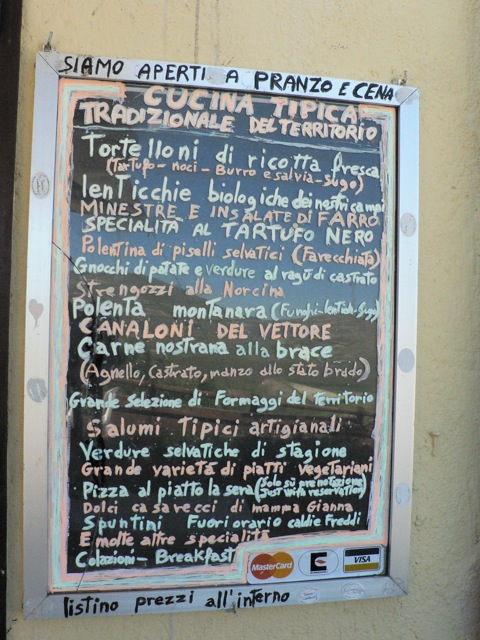 SIAMO APERTI A PRANZO E CENA
CUCINA TIPICA
TRADIZIONALE DEL TERRITORIO
Tortelloni di ricotta fresca
(Tartufo - noci - Burro e salvia - sugo)
lenTicchie biologiche dei nostri campi
MINESTRE E INSALATE DI FARRO
SPECIALITÀ AL TARTUFO NERO
Polentina di piselli selvatici (Farecchiata)
Gnocchi di patate e verdure al ragù di castrato
Strengozzi alla Norcina
Polenta montanara (Funghi-lenticch-sugo)
CANALONI DEL VETTORE
Carne nostrana alla brace
(Agnello, Castrato, manzo allo stato brado)
Grande Selezione di Formaggi del Territorio
Salumi Tipici artigianali
Verdure selvatiche di stagione
Grande varietà di piatti vegetariani
Pizza al piatto la sera (Solo su prenotazione)
(Just with reservation)
Dolci casarecci di mamma Gianna
Spuntini Fuori orario caldi e Freddi
E molte altre specialità
Colazioni - Breakfast
MasterCard
E
VISA
listino prezzi all'interno